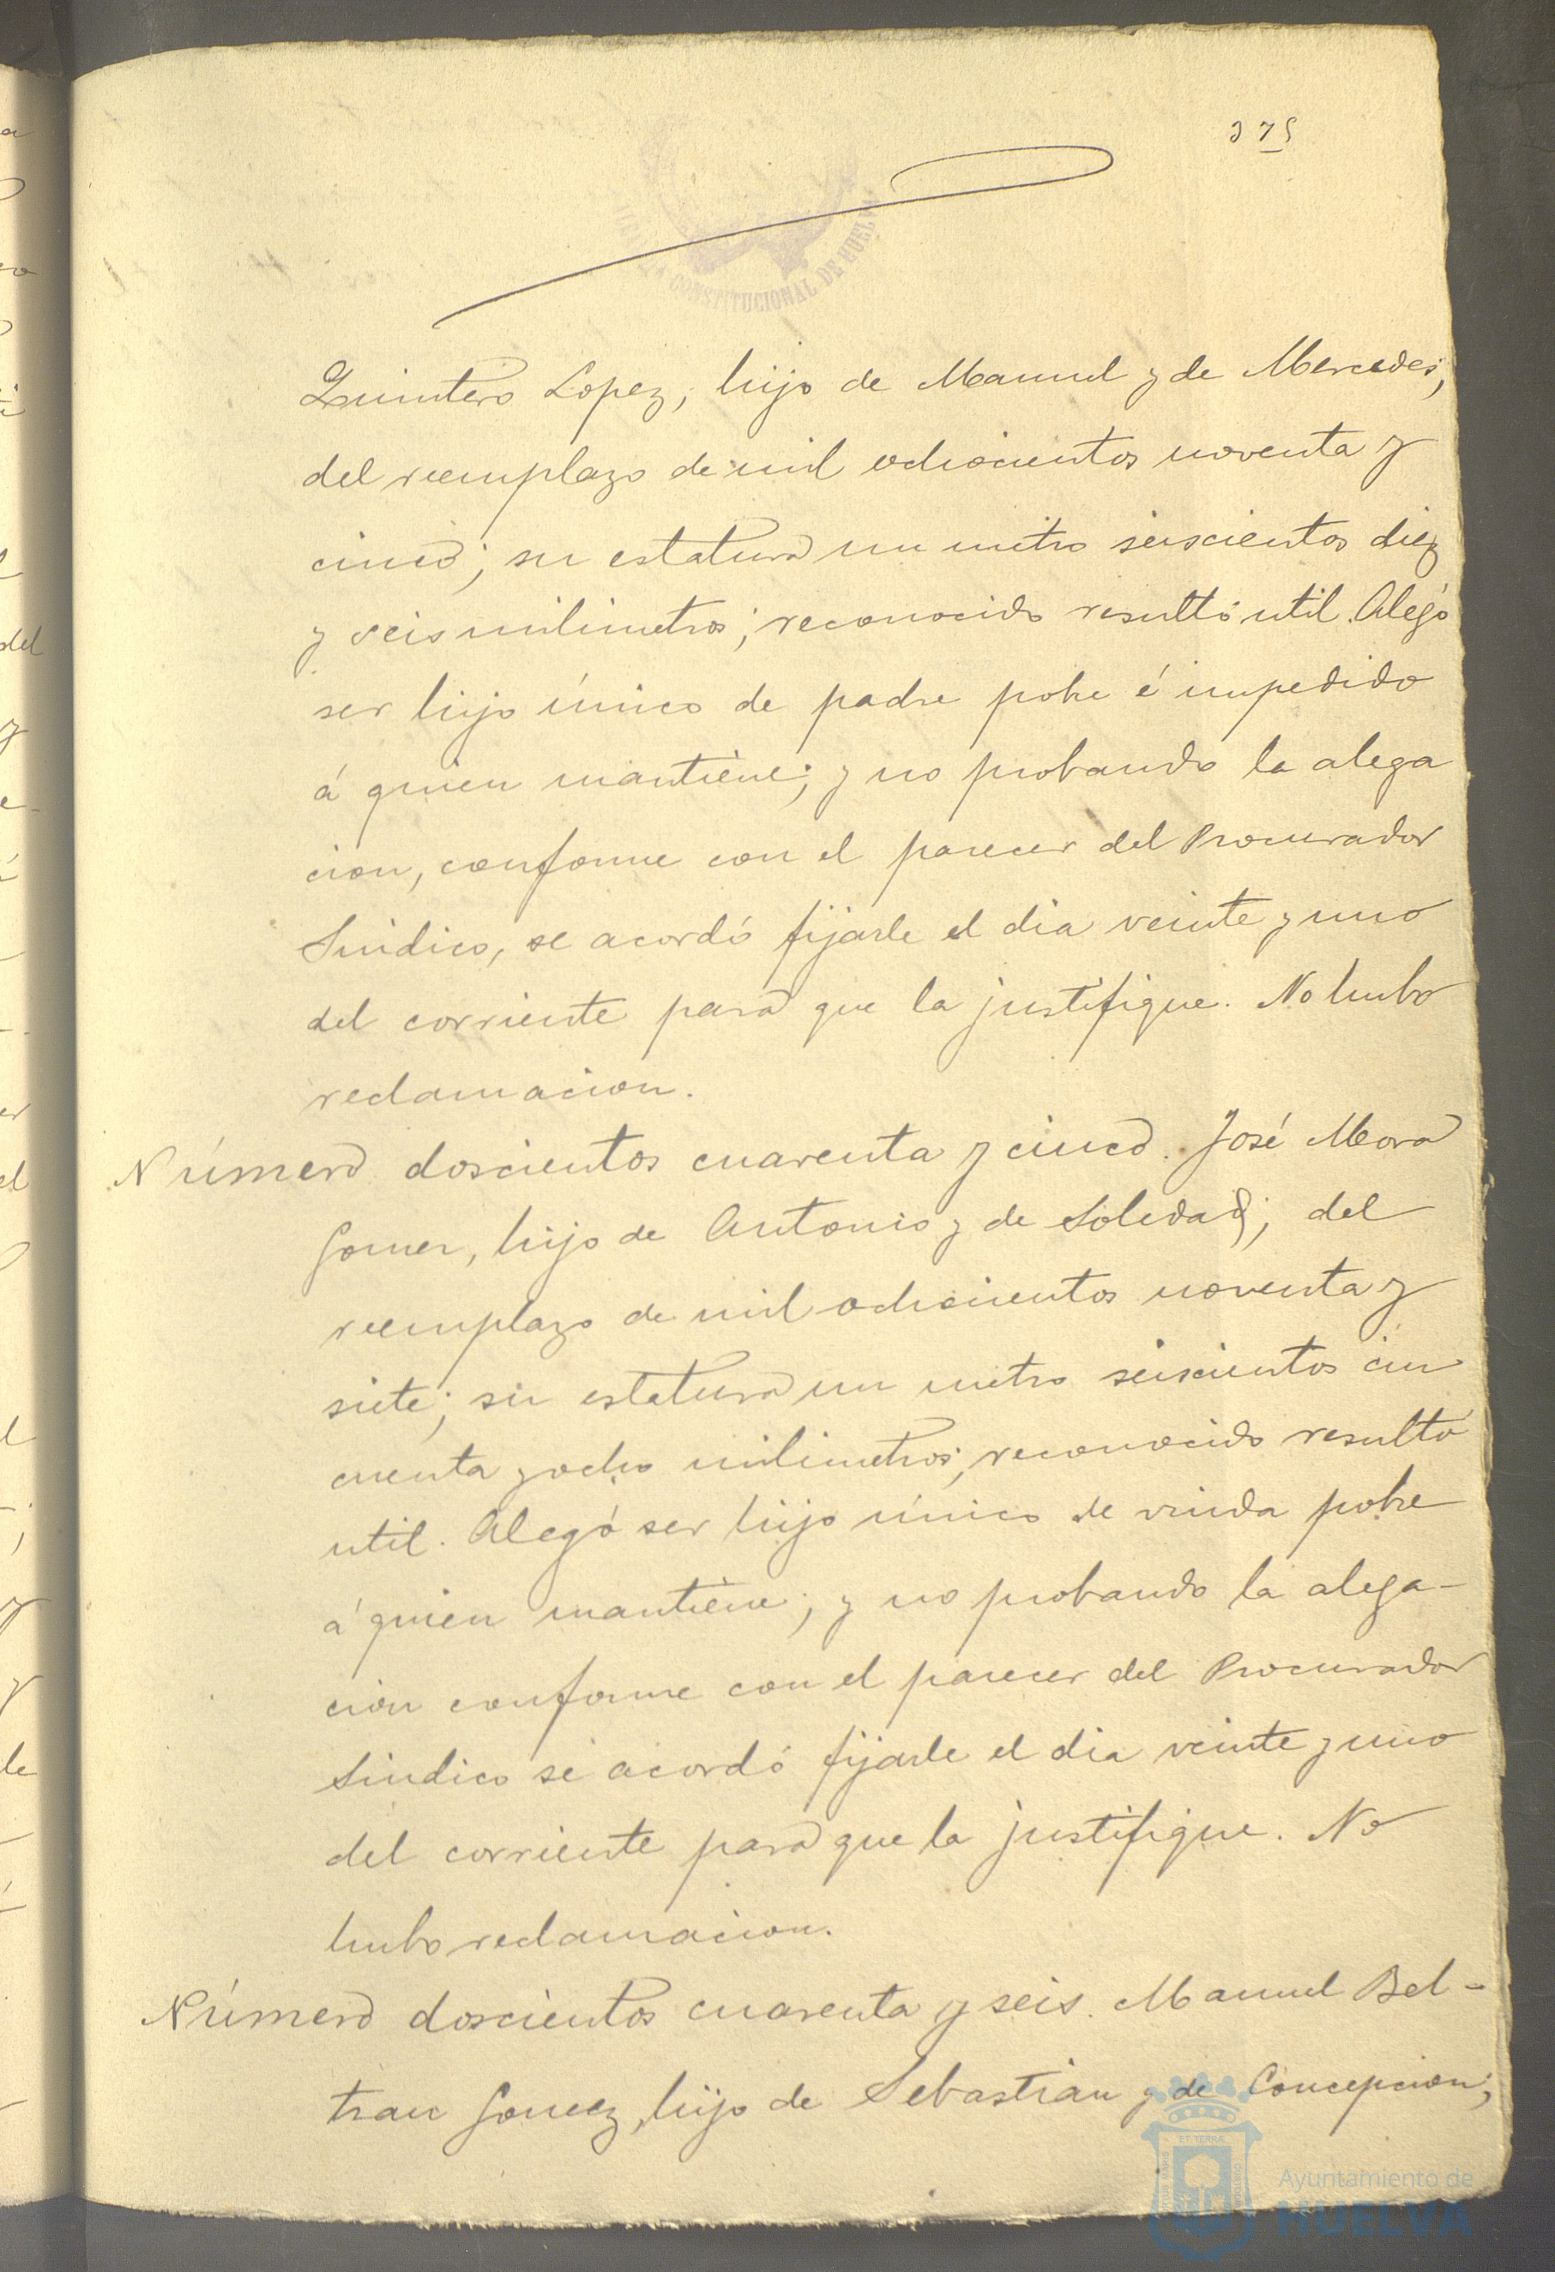 375
CONSTITUCIONAL DE HUELVA
Quintero Lopez, hijo de Manuel y de Mercedes;
del reemplazo de mil ochocientos noventa y
cinco; su estatura un metro seiscientos diez
y seis milimetros; reconocido resultó util. Alegó
ser hijo único de padre pobre é impedido
á quien mantiene; y no probando la alega
cion, conforme con el parecer del Procurador
Sindico, se acordó fijarle el dia veinte y uno
del corriente para que la justifique. No hubo
reclamacion.
Número doscientos cuarenta y cinco. José Mora
Gomez, hijo de Antonio y de Soledad; del
reemplazo de mil ochocientos noventa y
siete; su estatura un metro seiscientos cin
cuenta y ocho milimetros; reconocido resultó
util. Alegó ser hijo único de viuda pobre
á quien mantiene; y no probando la alega-
cion conforme con el parecer del Procurador
Sindico se acordó fijarle el dia veinte y uno
del corriente para que la justifique. No
hubo reclamacion.
Número doscientos cuarenta y seis. Manuel Bel-
tran Gomez, hijo de Sebastian y de Concepcion;
Ayuntamiento de
HUELVA